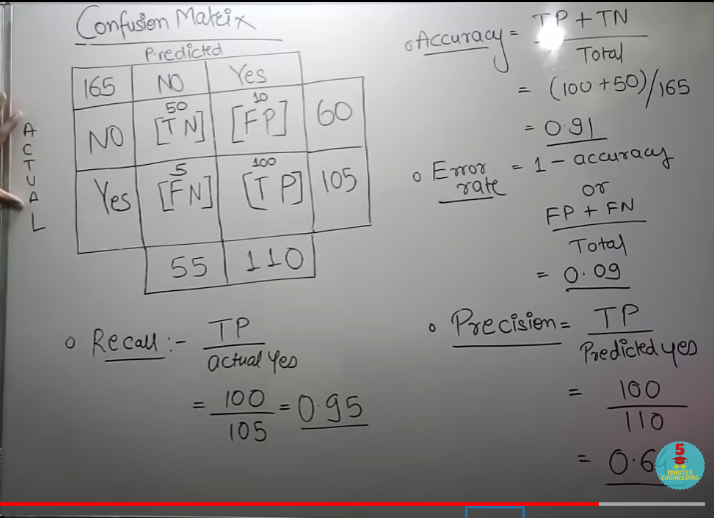 Confusion Matrix
Predicted
165 NO Yes
ACTUAL
50 10
NO [TN] [FP] 60
5 100
Yes [FN] [TP] 105
55 110
Recall :- TP
actual Yes
= 100
105
= 0.95
Accuracy = TP + TN
Total
= (100 + 50)/165
= 0.91
Error rate = 1 - accuracy
or
FP + FN
Total
= 0.09
Precision = TP
Predicted yes
= 100
110
= 0.6
5
MINUTES
ENGINEERING